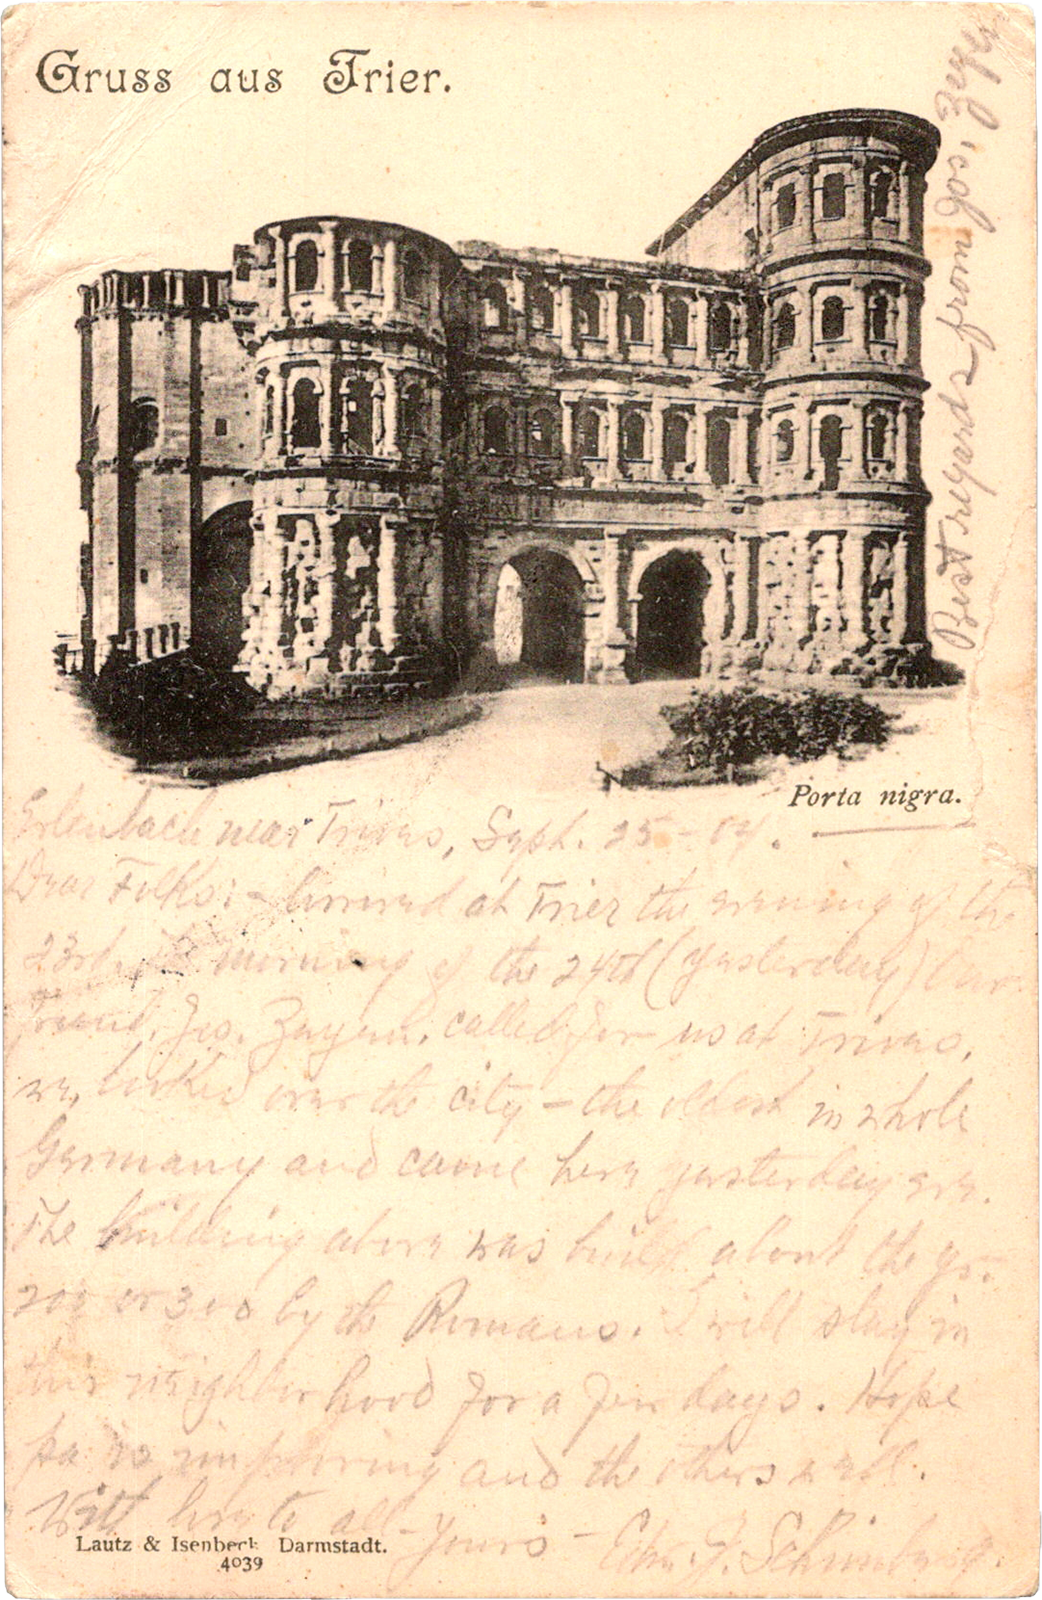 Gruss aus Trier.
Best regards from Jos. Zeyen
Porta nigra.
Erlenbach near Trives, Sept. 25 - 04.
Dear Folks: - Arrived at Trier the evening of the
23rd. The morning of the 24th (yesterday) our
friend, Jos. Zeyen, called for us at Trives,
we looked over the city - the oldest in whole
Germany and came here yesterday eve.
The building above was build about the yr.
200 or 300 by the Romans. I will stay in
this neighborhood for a few days. Hope
pa is improving and the others well.
With love to all - Yours - Edw. J.
Lautz & Isenbeck Darmstadt.
4039